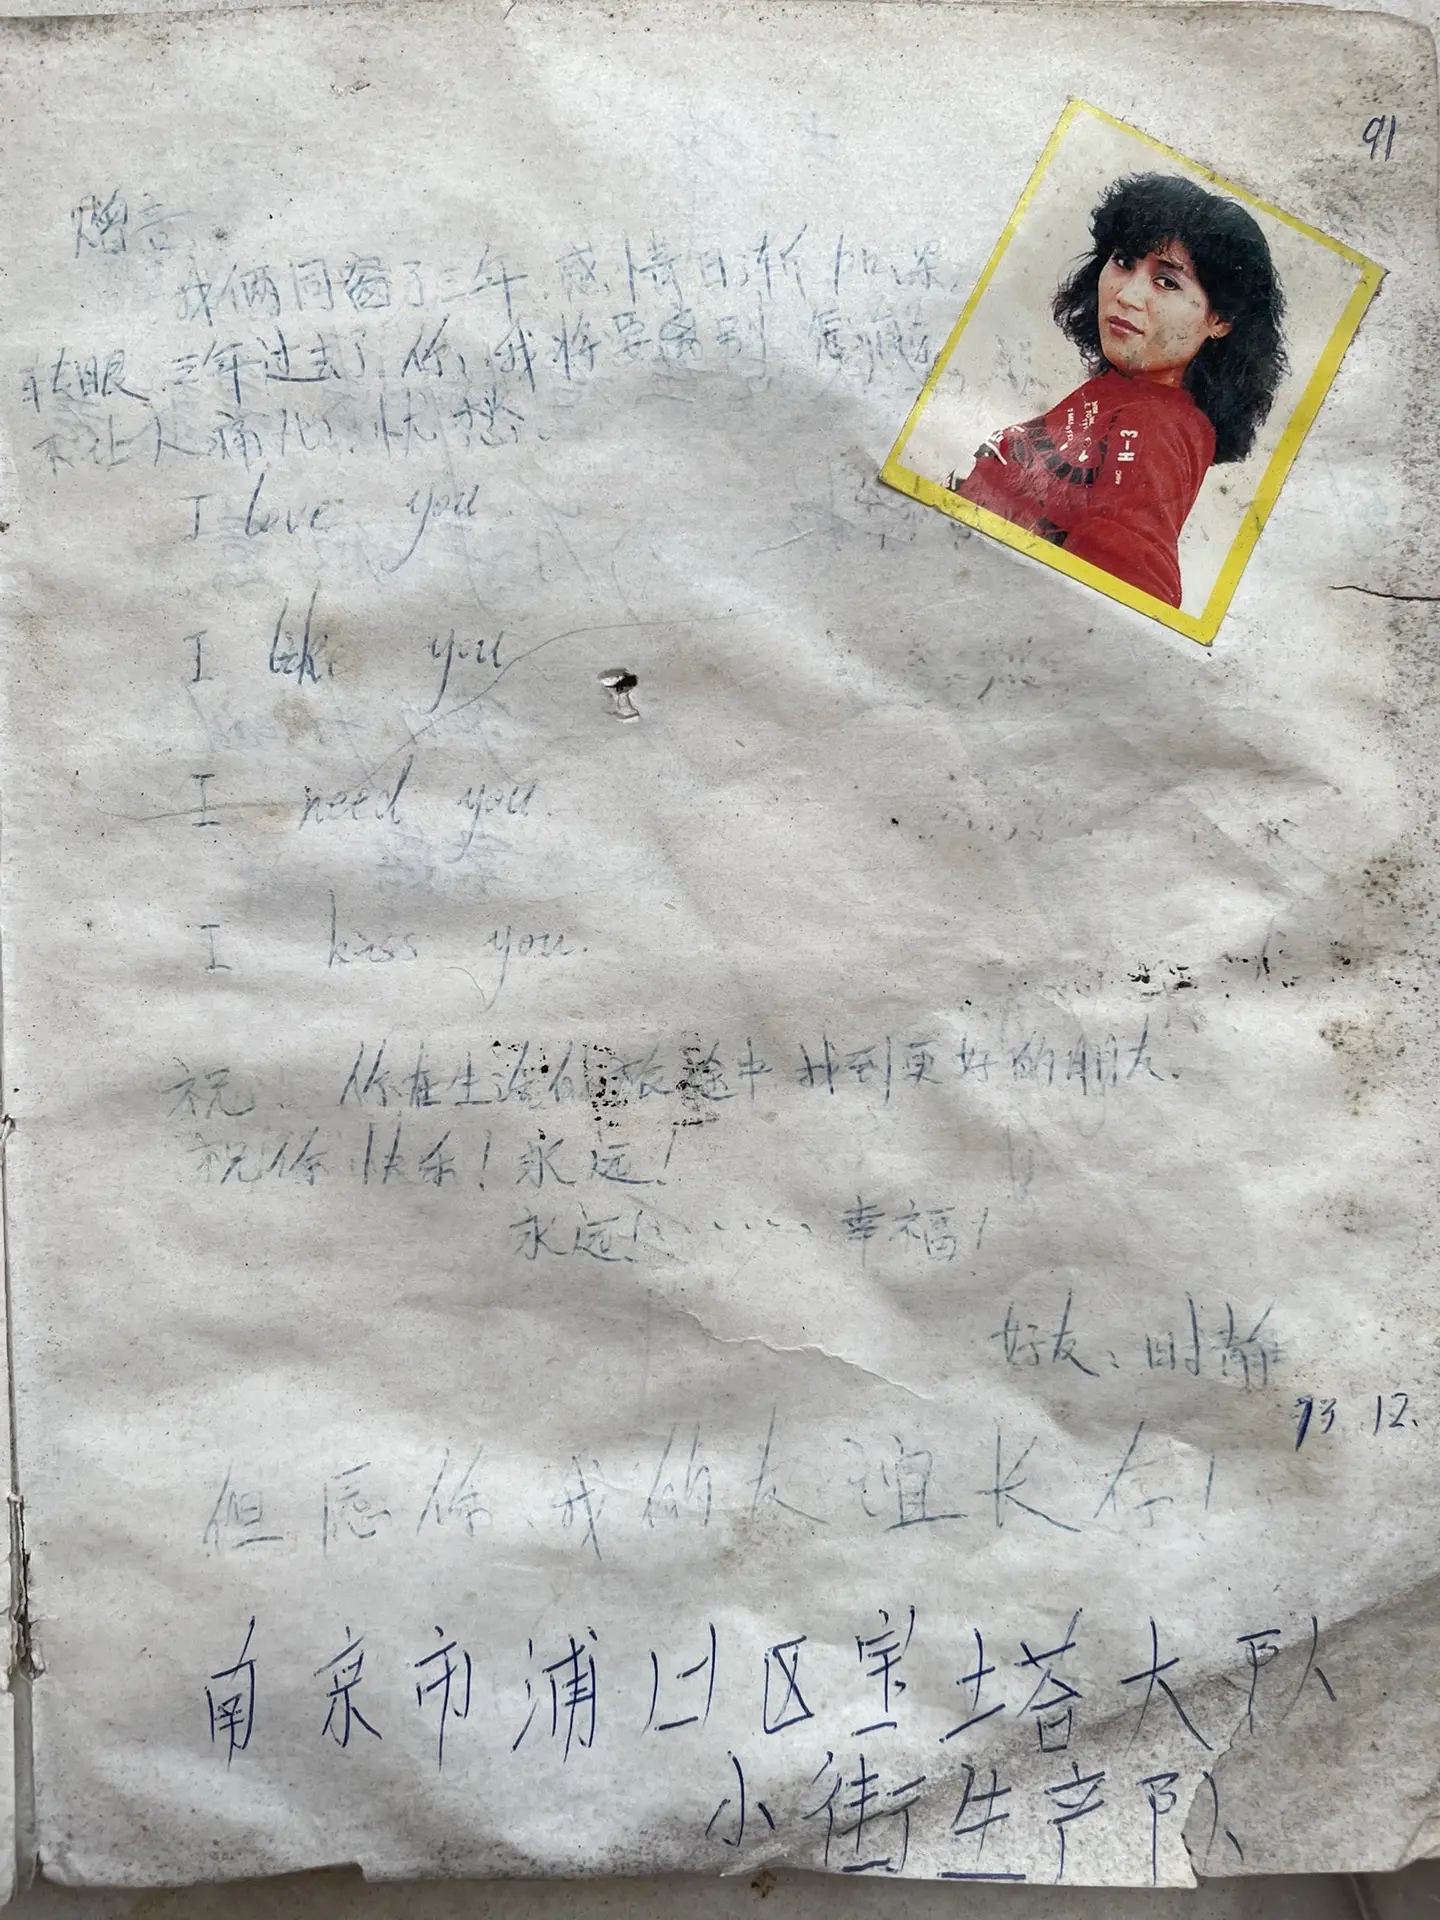 91
我俩同窗了三年.感情日渐加深.
转眼.三年过去了.你、我将要离别
不让人痛心、忧愁.
I love you.
I like you
I need you.
I kiss you.
H-3
祝、你在生活的旅途中找到更好的朋友.
祝你快乐!永远!
永远!……幸福!
好友:时静
12.
但愿你、我的友谊长存!
南京市浦口区宝塔大队
小街生产队